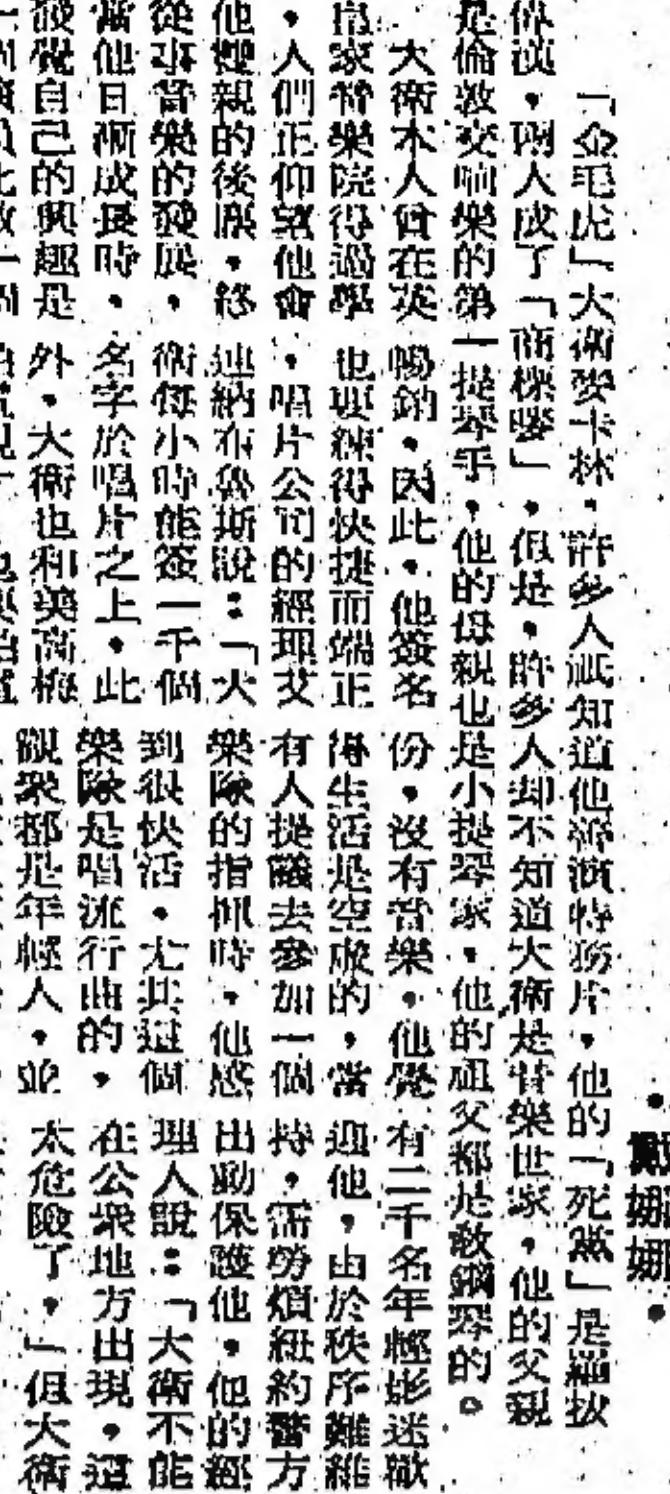 •娜娜•
「金毛虎」大衛麥卡林,許多人祇知道他演特務片,他的「死黨」是羅拔
偉漢,兩人成了「商標嘜」,但是,許多人却不知道大衛是音樂世家,他的父親
是倫敦交响樂的第一提琴手,他的母親也是小提琴家,他的祖父都是敎鋼琴的。
大衛本人曾在英
皇家音樂院得過學
,人們正仰望他會
他雙親的後塵,終
從事音樂的發展,
當他日漸成長時,
發覺自己的興趣是
暢銷,因此,他簽名
也要練得快捷而端正
,唱片公司的經理艾
連納布魯斯說:「大
衛每小時能簽一千個
名字於唱片之上,此
外,大衛也和美高梅
份,沒有音樂,他覺
得生活是空虛的,當
有人提議去參加一個
樂隊的指揮時,他感
到很快活,尤其這個
樂隊是唱流行曲的,
觀衆都是年輕人,並
有二千名年輕影迷歡
迎他,由於秩序難維
持,需勞煩紐約警方
出動保護他,他的經
理人說:「大衛不能
在公衆地方出現,這
太危險了,」但大衛